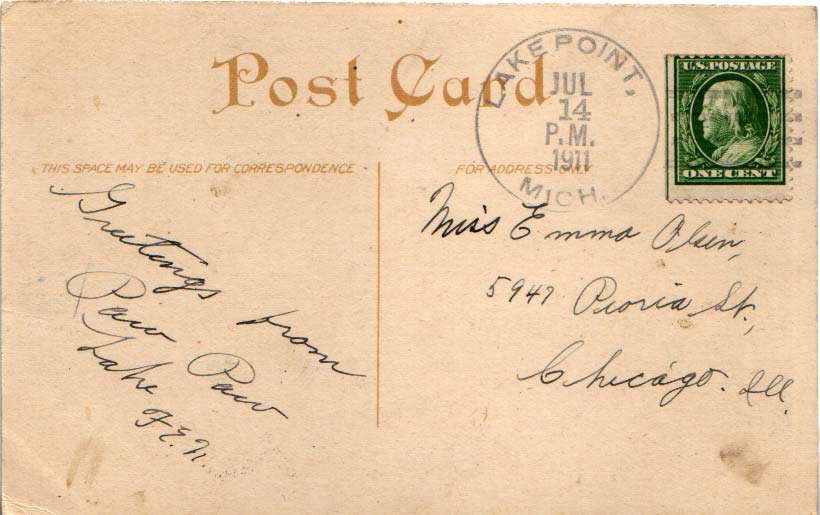 Post Card
LAKE POINT,
JUL
14
P.M.
1911
MICH.
U.S. POSTAGE
ONE CENT
THIS SPACE MAY BE USED FOR CORRESPONDENCE
FOR ADDRESS ONLY
Greetings from
Paw Paw
Lake
F.E.N.
Miss Emma Olsen,
5947 Peoria St.,
Chicago. Ill.